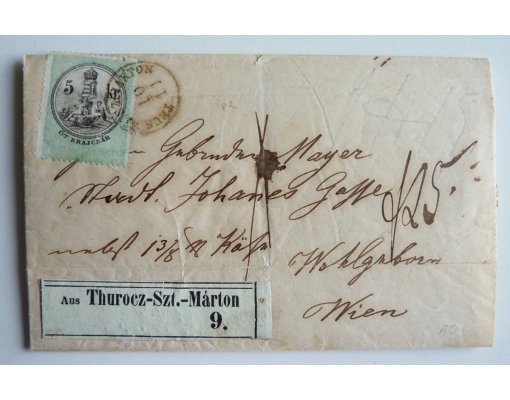 5 kr
ÖT KRAJCZÁR
MÁRTON
THUR
82
Gebrüder Mayer
Stadt Johanes Gasse
nebst 13/8 ℔ Käse
Wohlgeborn
Wien
125
Aus Thurocz-Szt.-Márton
9.